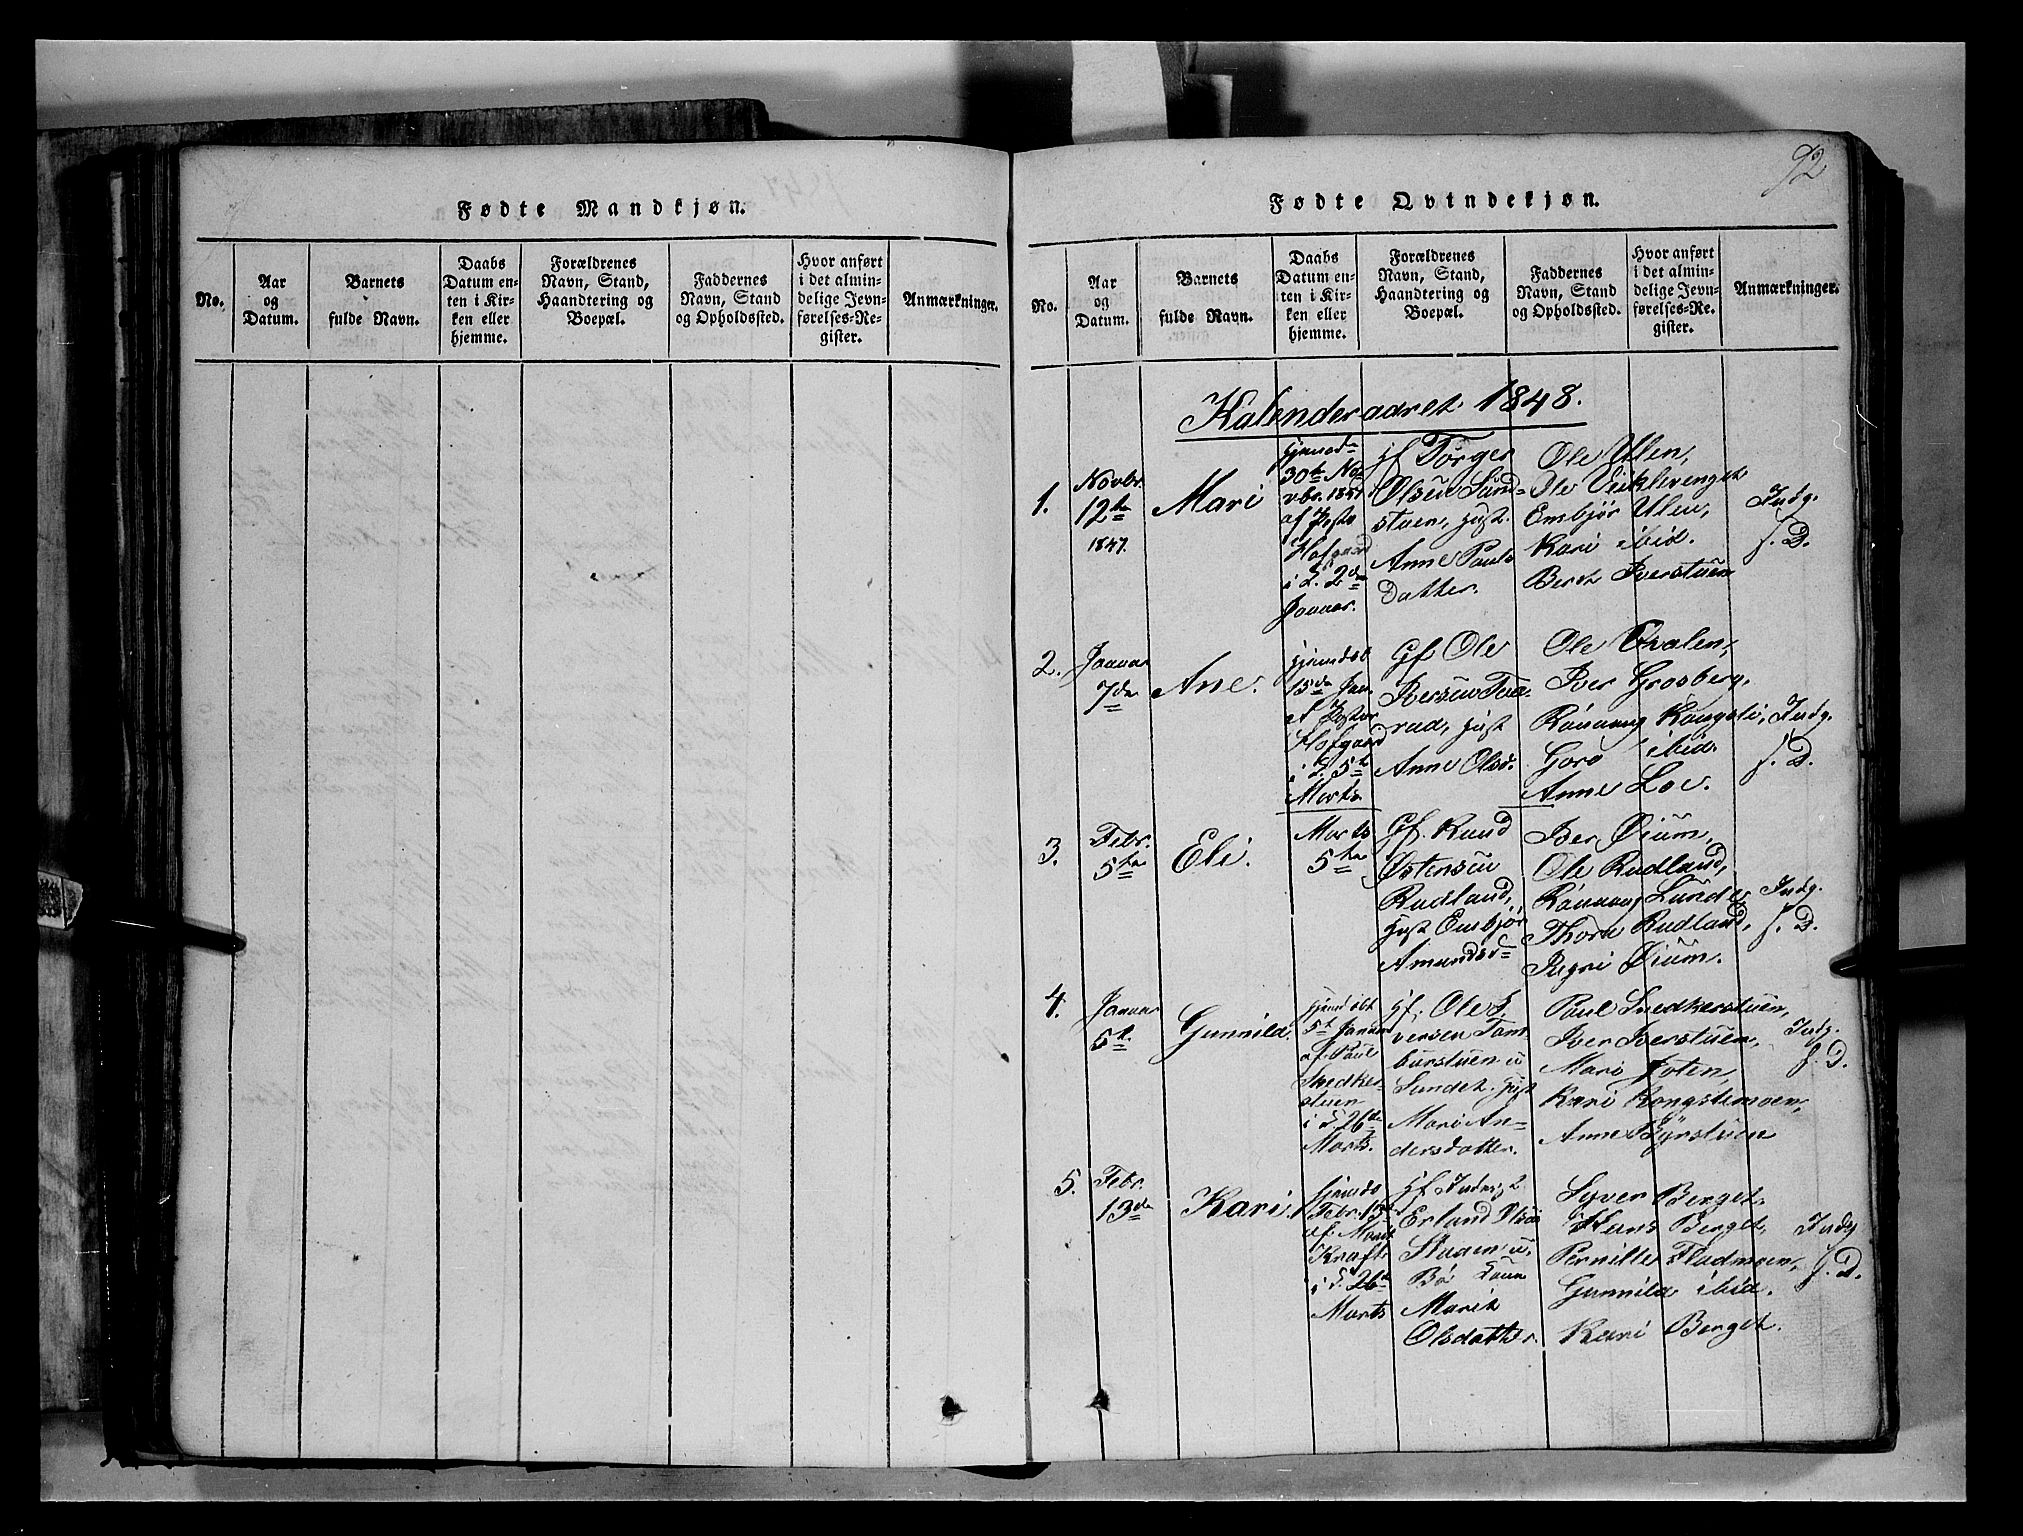 92
Fødte Mandkjøn.
No.
Aar
og
Datum.
Barnets
fulde Navn.
Daabs
Datum en-
ten i Kir-
ken eller
hjemme.
Forældrenes
Navn, Stand,
Haandtering og
Boepæl.
Faddernes
Navn, Stand
og Opholdssted.
Hvor anført
i det almin-
delige Jevn-
førelses-Re-
gister.
Anmærkninger.
Fødte Qvindekjøn.
No.
Aar
og
Datum.
Barnets
fulde Navn.
Daabs
Datum en-
ten i Kir-
ken eller
hjemme.
Forældrenes
Navn, Stand,
Haandtering og
Boepæl.
Faddernes
Navn, Stand
og Opholdssted.
Hvor anført
i det almin-
delige Jevn-
førelses-Re-
gister.
Anmærkninger.
Kalenderaaret 1848.
1.
Novbr.
12te
1847.
Mari
30te No
vbr. 1847
af Pastor
Hofgaard
i 2den
Januar.
Gf Torger
Olsen Sund-
stuen, Hust.
Anne Pauls
datter.
Ole Ulen,
Ole Veiklevenget
Embjør Ulen,
Kari ibid.
Berit Iverstuen
Indg.
f. D.
2.
Januar
7de
Ane.
15de Jan.
af Pastor
Hofgaard
i 5te
Marts
Gf Ole
Iversen
rud, Hust
Anne Olsd.
Ole Qvalen,
Iver Grosberg,
Rønnoug Kongsli,
Goro ibid.
Anne Loe.
Indg.
f. D.
3.
Febr.
5te
Eli.
Marts
5te
Gf. Knud
Østensen
Rudland,
Hust Embjør
Amundsd
Iver Øium,
Ole Rudland,
Rønnoug Lunde,
Thora Rudland,
Ingri Øium.
Indg.
f. D.
4.
Januar
5te
Gunnild.
5te Januar
af Paul
Snedker
stuen
i 26de
Marts.
Gf. Ole I
versen Tam
burstuen u
Sundet. Hust
Mari An=
dersdatter.
Poul Snedkerstuen,
Iver Iverstuen,
Mari Joten,
Kari Kongslimoen,
Anne Byrstuen
Indg.
f. D.
5.
Febr.
13de
Kari.
Febr. 15de
af Marit
Kraft
i 26de
Marts
Gf Inderst
Erland Olsen
Stagen u.
Bø Kone
Marit
Olsdatter.
Syver Berget,
Hans Berget,
Pernille Fladmoen,
Gunnild ibid.
Kari Berget.
Indg
f. D.